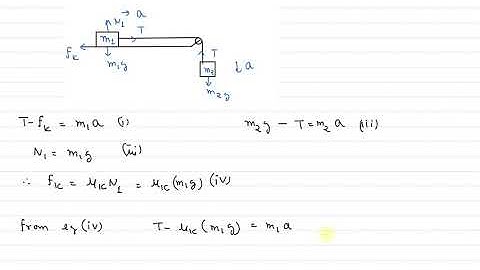 → a
N₁
T
m₁
fₖ
m₁g
T
m₂
↓a
m₂g
T - fₖ = m₁a (i)
m₂g - T = m₂a (iii)
N₁ = m₁g (ii)
∴ fₖ = μₖN₁ = μₖ(m₁g) (iv)
from eq (iv) T - μₖ(m₁g) = m₁a